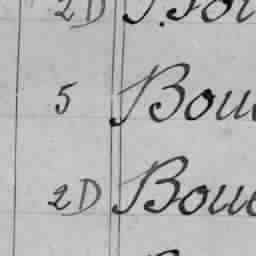 2D
5 Bou
2D Bou